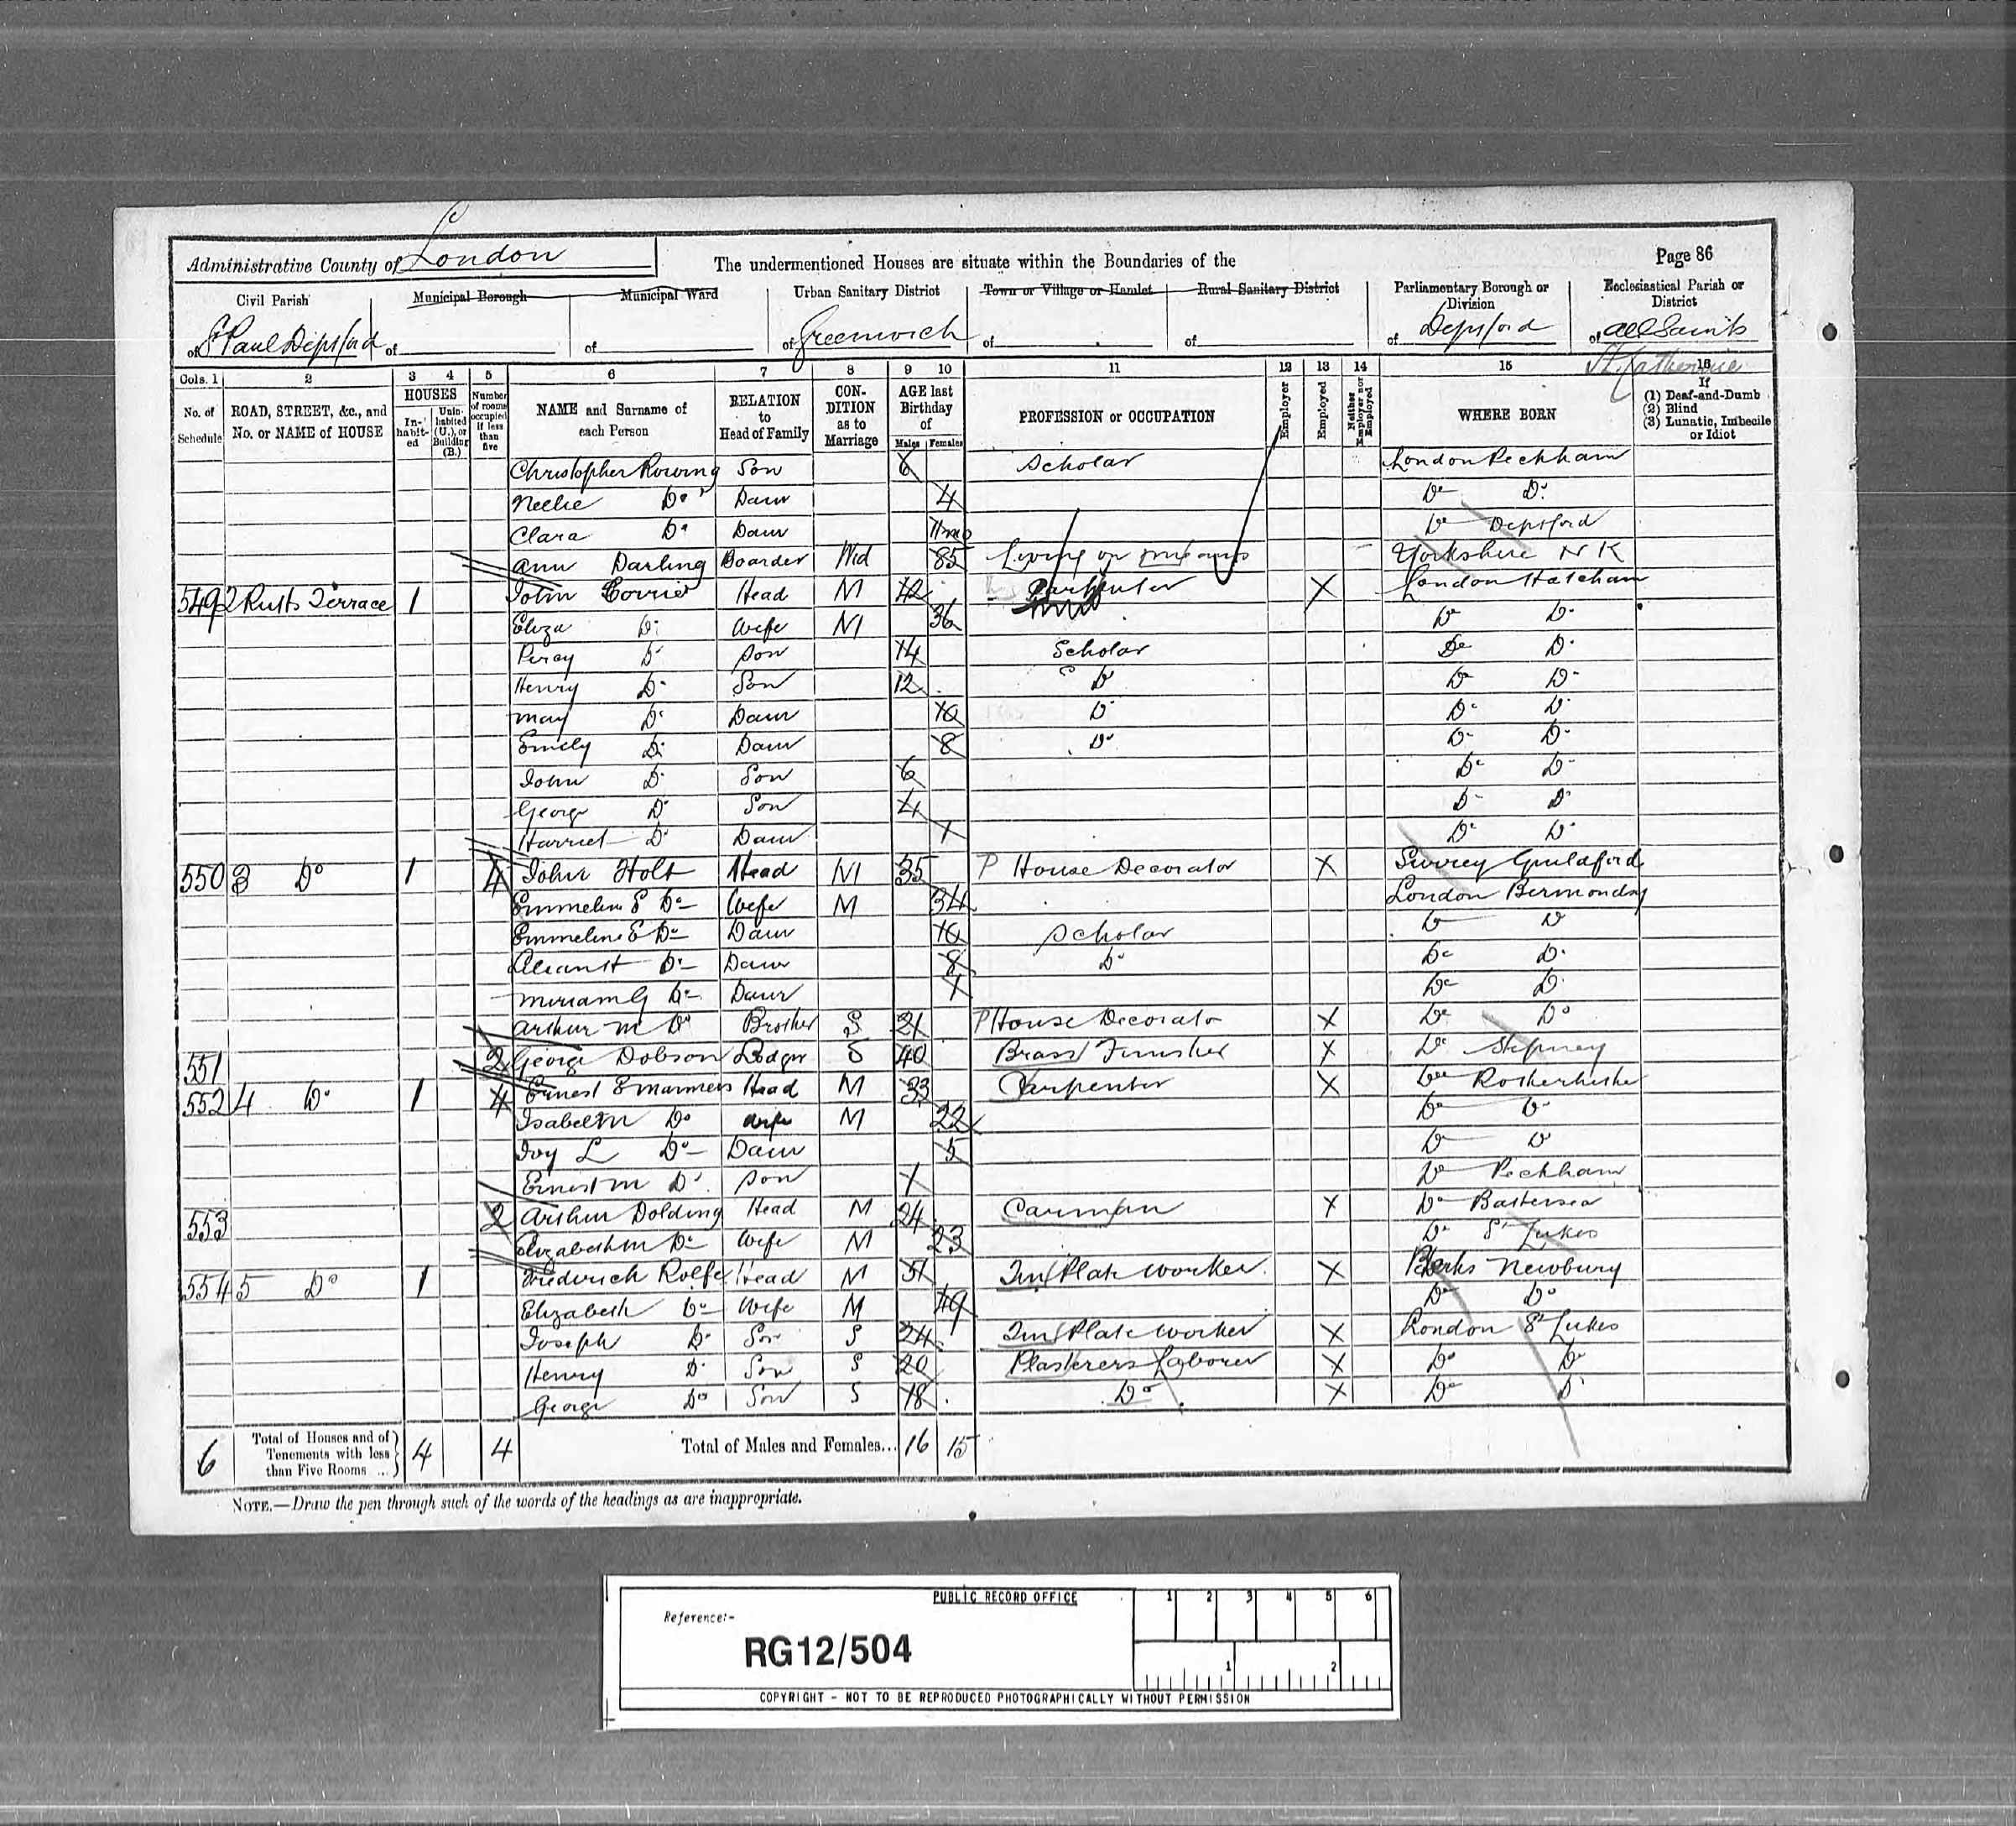 Administrative County of London
The undermentioned Houses are situate within the Boundaries of the
Page 86
Civil Parish of St Paul Deptford
Municipal Borough of
Municipal Ward of
Urban Sanitary District of Greenwich
Town or Village or Hamlet of
Rural Sanitary District of
Parliamentary Borough or Division of Deptford
Ecclesiastical Parish or District of All Saints
St Catherine
Cols. 1 2 3 4 5 6 7 8 9 10 11 12 13 14 15 16
No. of Schedule
ROAD, STREET, &c., and No. or NAME of HOUSE
HOUSES
In-habit-ed
Unin-habited (U.), or Building (B.)
Number of rooms occupied if less than five
NAME and Surname of each Person
RELATION to Head of Family
CON-DITION as to Marriage
AGE last Birthday of
Males Females
PROFESSION or OCCUPATION
Employer
Employed
Neither Employer nor Employed
WHERE BORN
If (1) Deaf-and-Dumb (2) Blind (3) Lunatic, Imbecile or Idiot
Christopher Rowing Son 6 Scholar London Peckham
Nellie Do Daur 4 Do Do
Clara Do Daur 11mo Do Deptford
Ann Darling Boarder Wid 85 Living on means Yorkshire N K
549 2 Rusts Terrace 1 John Corrie Head M 42 Carpenter X London Hatcham
Eliza Do Wife M 36 Do Do
Percy Do Son 14 Scholar Do Do
Henry Do Son 12 Do Do Do
May Do Daur 10 Do Do Do
Emily Do Daur 8 Do Do Do
John Do Son 6 Do Do
George Do Son 4 Do Do
Harriet Do Daur 1 Do Do
550 3 Do 1 4 John Holt Head M 35 P House Decorator X Surrey Guildford
Emmeline S Do Wife M 34 London Bermondsy
Emmeline E Do Daur 10 Scholar Do Do
Do Daur 8 Do Do Do
Miriam G Do Daur 1 Do Do
Arthur M Do Brother S 21 P House Decorator X Do Do
551 2 George Dobson Lodger S 40 Brass Finisher X Do Stepney
552 4 Do 1 4 Ernest E Head M 33 Carpenter X Do Rotherhithe
Isabel M Do Wife M 22 Do Do
Ivy L Do Daur 5 Do Do
Ernest M Do Son 1 Do Peckham
553 2 Arthur Dolding Head M 24 Carman X Do Battersea
Elizabeth M Do Wife M 23 Do St Lukes
554 5 Do 1 Frederick Rolfe Head M 51 Tin Plate Worker X Berks Newbury
Elizabeth Do Wife M 49 Do Do
Joseph Do Son S 24 Tin Plate Worker X London St Lukes
Henry Do Son S 20 Plasterers Laborer X Do Do
George Do Son S 18 Do X Do Do
6 Total of Houses and of Tenements with less than Five Rooms ... 4 4 Total of Males and Females... 16 15
NOTE.—Draw the pen through such of the words of the headings as are inappropriate.
PUBLIC RECORD OFFICE
1 2 3 4 5 6
Reference:-
RG12/504
1 2
COPYRIGHT - NOT TO BE REPRODUCED PHOTOGRAPHICALLY WITHOUT PERMISSION